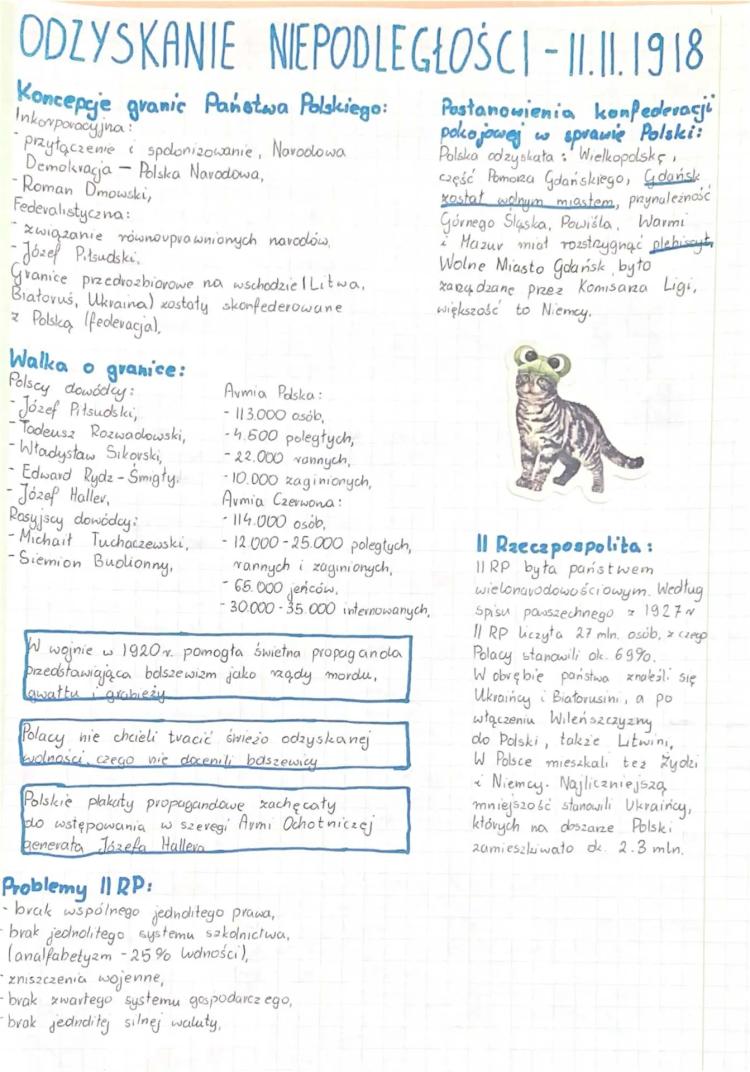 ODZYSKANIE NIEPODLEGŁOŚCI - 11.11.1918
Koncepcje granic Państwa Polskiego:
Inkorporacyjna:
- przyłączenie i spolonizowanie, Narodowa
Demokracja — Polska Narodowa,
- Roman Dmowski,
Federalistyczna:
- związanie równouprawnionych narodów,
- Józef Piłsudski.
Granice przedrozbiorowe na wschodzie (Litwa,
Białoruś, Ukraina) zostały skonfederowane
z Polską (federacja).
Walka o granice:
Polscy dowódcy:
- Józef Piłsudski,
- Tadeusz Rozwadowski,
- Władysław Sikorski,
- Edward Rydz-Śmigły.
- Józef Haller,
Rosyjscy dowódcy:
- Michaił Tuchaczewski,
- Siemion Budionny,
Armia Polska:
- 113.000 osób,
- 4.500 poległych,
- 22.000 rannych,
- 10.000 zaginionych,
Armia Czerwona:
- 114.000 osób,
- 12.000-25.000 poległych,
rannych i zaginionych,
- 65.000 jeńców,
- 30.000-35.000 internowanych,
W wojnie w 1920r. pomogła świetna propaganda
przedstawiająca bolszewizm jako rządy mordu,
gwałtu i grabieży
Polacy nie chcieli tracić świeżo odzyskanej
wolności, czego nie docenili bolszewicy
Polskie plakaty propagandowe zachęcały
do wstępowania w szeregi Armi Ochotniczej
generała Józefa Hallera
Problemy II RP:
- brak wspólnego jednolitego prawa,
- brak jednolitego systemu szkolnictwa,
(analfabetyzm - 25% ludności),
- zniszczenia wojenne,
- brak zwartego systemu gospodarczego,
- brak jednolitej silnej waluty,
Postanowienia konfederacji
pokojowej w sprawie Polski:
Polska odzyskała: Wielkopolskę,
część Pomorza Gdańskiego, Gdańsk
został wolnym miastem, przynależność
Górnego Śląska, Powiśla, Warmi
i Mazur miał rozstrzygnąć plebiscyt,
Wolne Miasto Gdańsk było
zarządzane przez Komisarza Ligi,
większość to Niemcy.
II Rzeczpospolita:
II RP była państwem
wielonarodowościowym. Według
spisu powszechnego z 1927r
II RP liczyła 27 mln. osób, z czego
Polacy stanowili ok. 69%.
W obrębie państwa znaleźli się
Ukraińcy i Białorusini, a po
włączeniu Wileńszczyzny
do Polski, także Litwini,
W Polsce mieszkali też Żydzi
i Niemcy. Najliczniejszą
mniejszość stanowili Ukraińcy,
których na obszarze Polski
zamieszkiwało ok. 2.3 mln.